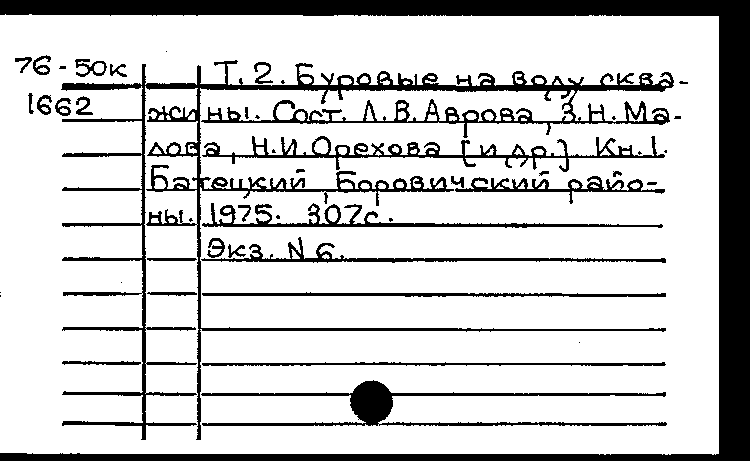 76-50к Т. 2. Буровые на воду сква-
1662 жины. Сост. Л.В.Аврова, З.Н.Ма-
лова, Н.И.Орехова [и др.] Кн.1.
Батецкий, Боровичский райо-
ны. 1975. 307с.
Экз. N 6.